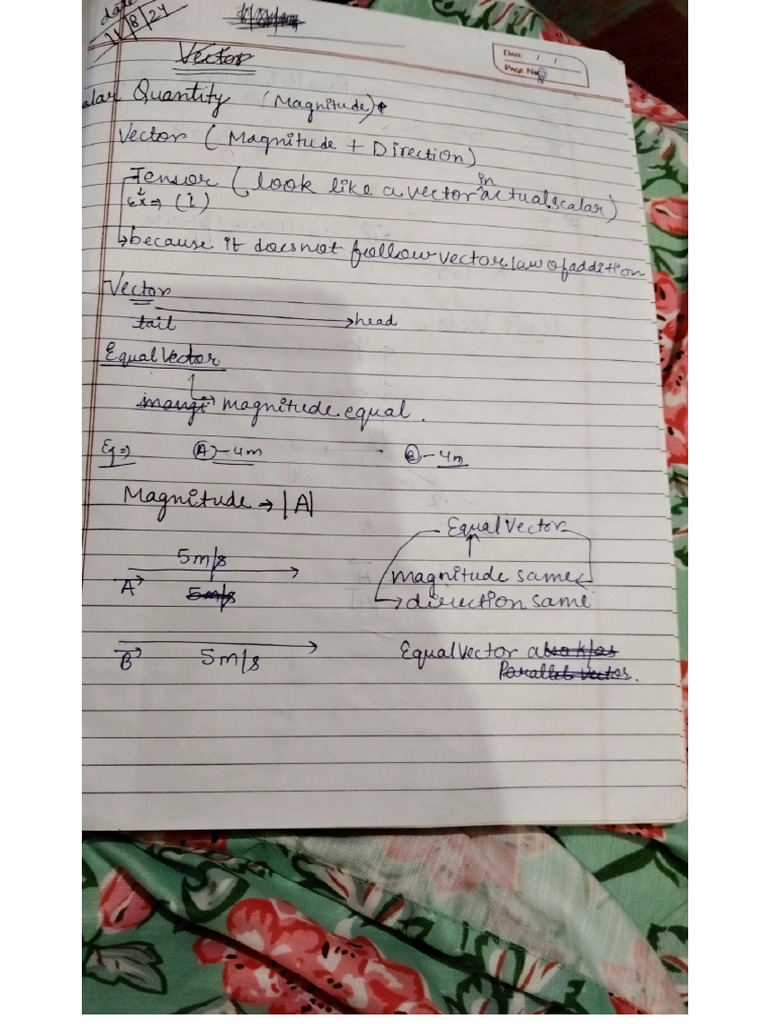 date
11/8/24
DATE / /
PAGE No.
Vector
alar Quantity (Magnitude)
Vector (Magnitude + Direction)
Tensor (look like a vector in actual scalar)
Ex⇒ (i)
↳because it does not follow vector law of addition
Vector
tail → head
Equal Vector
magnitude equal.
Eg⇒ (A) - 4m (B) - 4m
Magnitude → |A|
Equal Vector
5m/s
magnitude same
A 5m/s
direction same
B 5m/s
Equal Vector also k/as
Parallel vector.